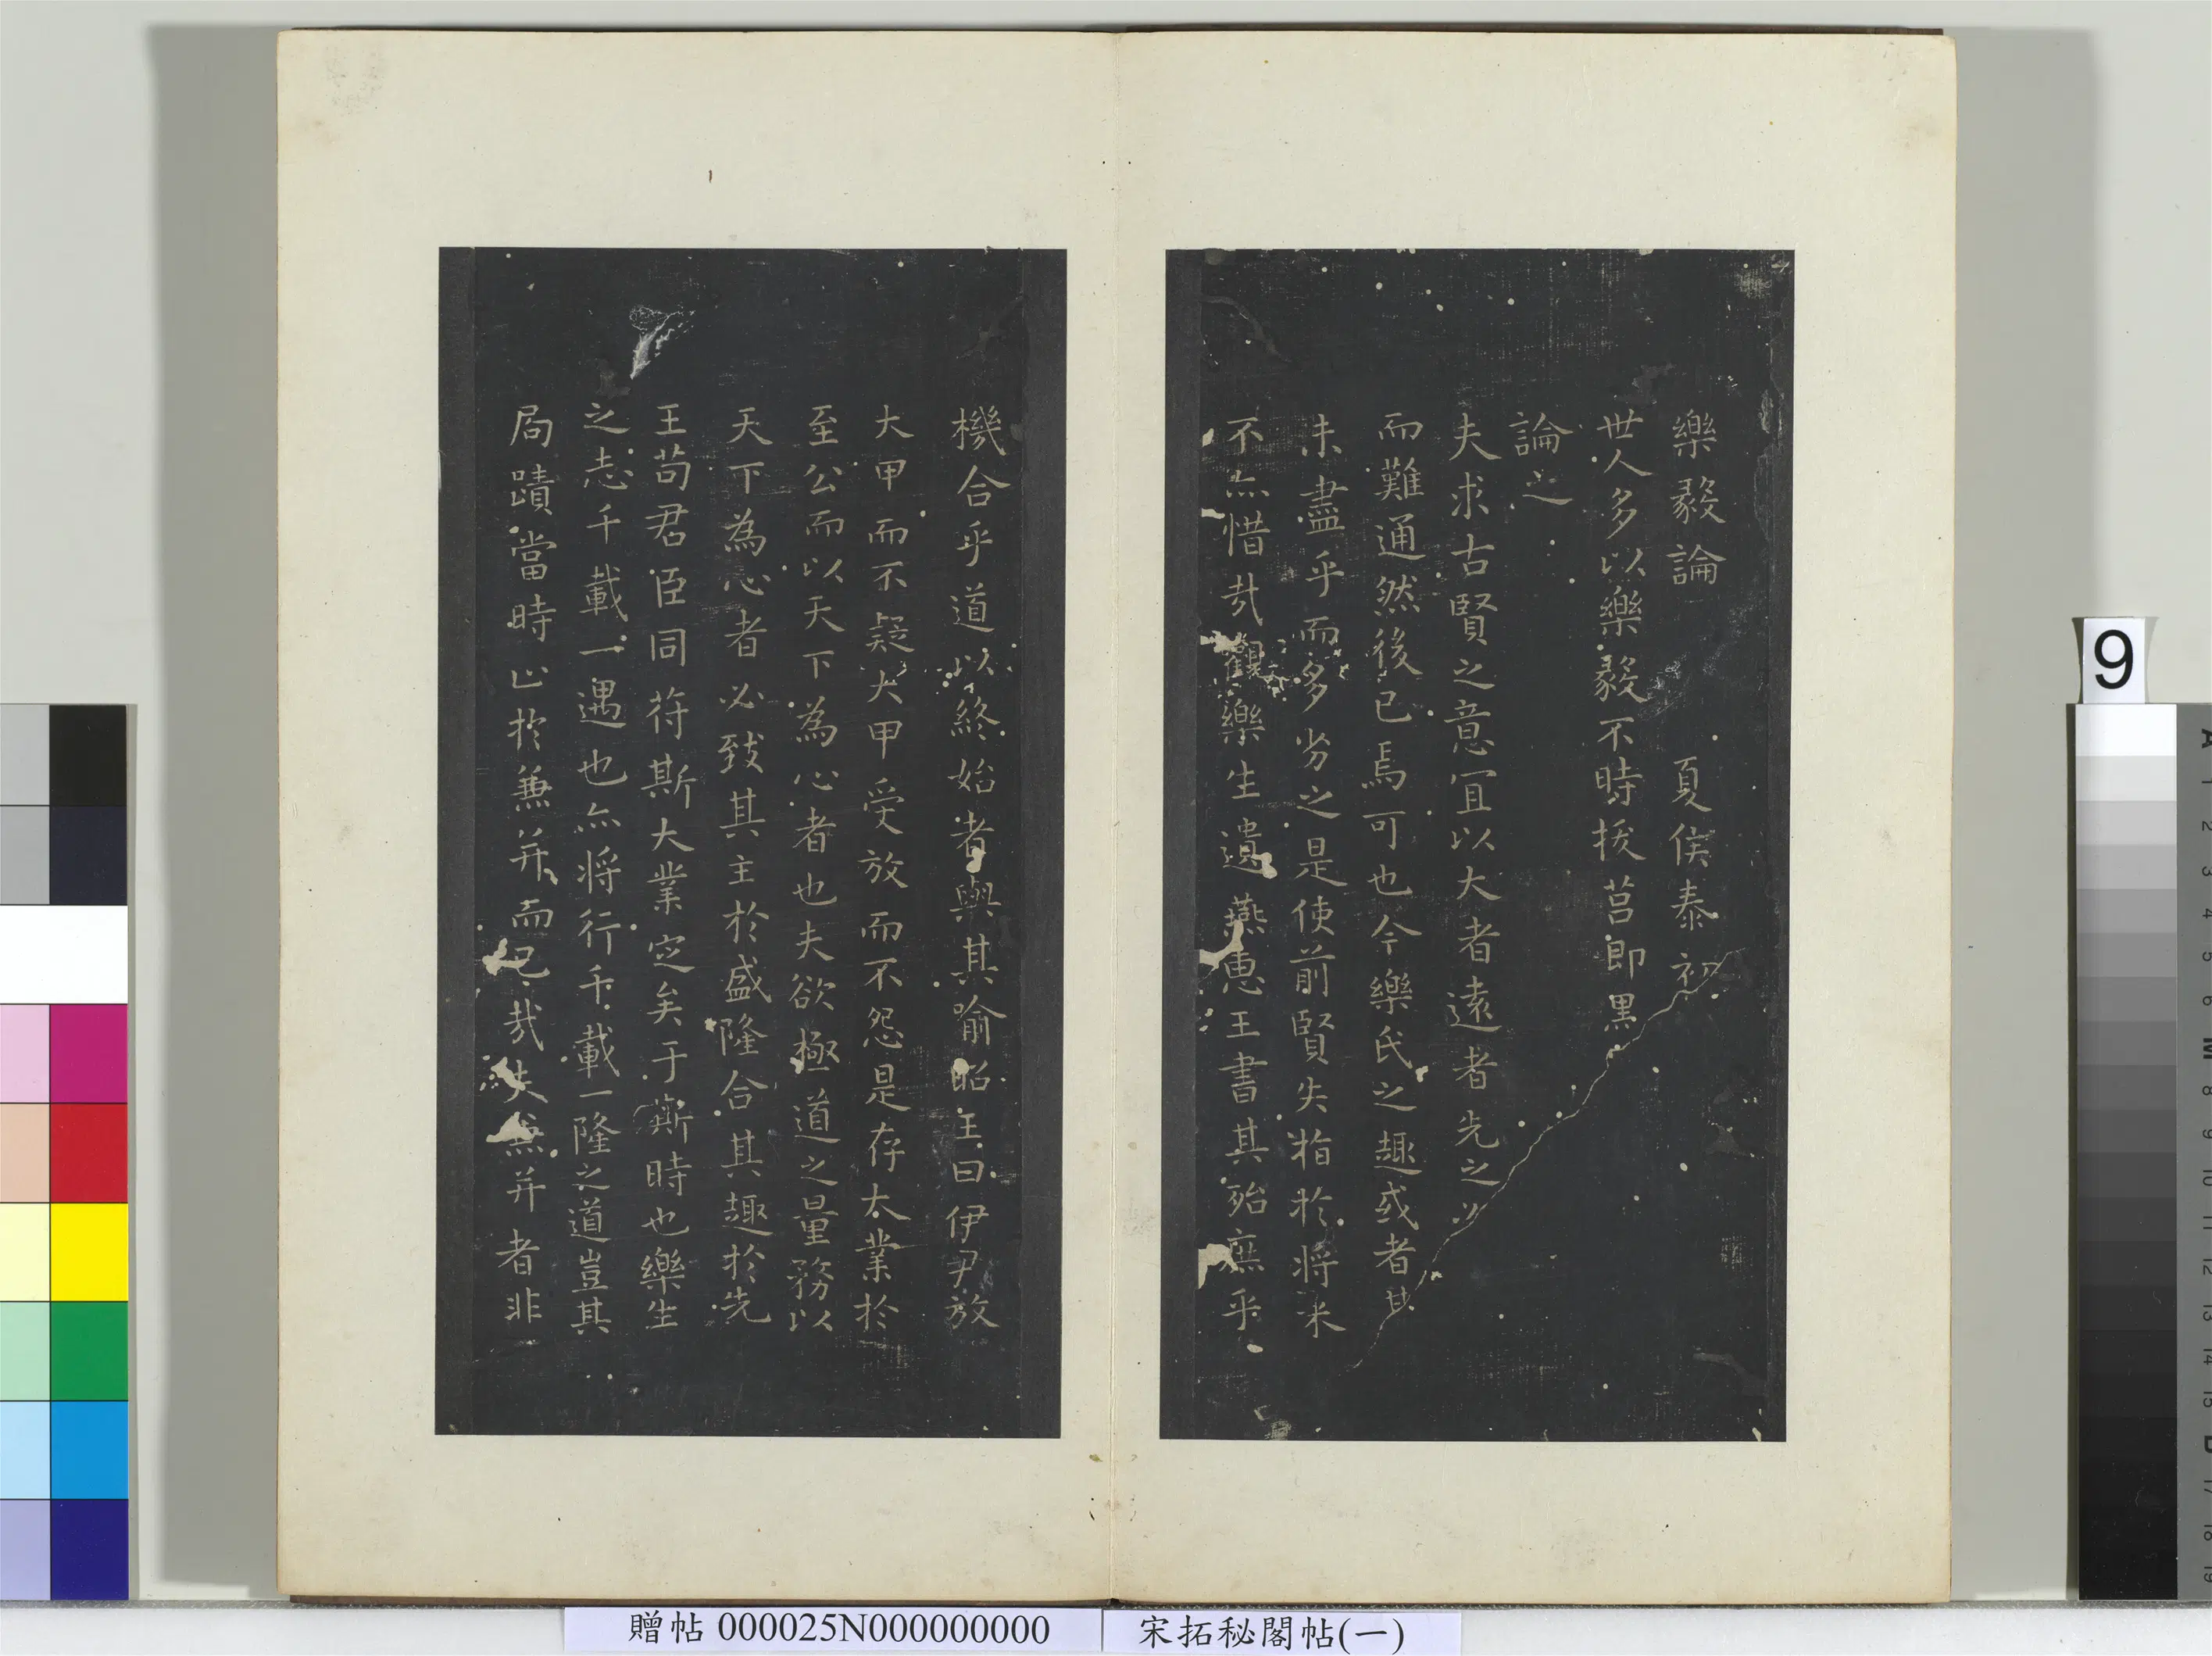 樂毅論　夏侯泰初
世人多以樂毅不時拔莒即墨
論之
夫求古賢之意宜以大者遠者先之必
而難通然後已焉可也今樂氏之趣或者其
未盡乎而多劣之是使前賢失指於將来
不亦惜哉觀樂生遺燕惠王書其殆庶乎
機合乎道以終始者與其喻昭王曰伊尹放
大甲而不疑大甲受放而不怨是存大業於
至公而以天下為心者也夫欲極道之量務以
天下為心者必致其主於盛隆合其趣於先
王苟君臣同苻斯大業定矣于斯時也樂生
之志千載一遇也亦将行千載一隆之道豈其
局蹟當時止於兼并而已哉夫兼并者非
贈帖 000025N000000000
宋拓秘閣帖(一)
9
A 1 2 3 4 5 6 M 8 9 10 11 12 13 14 15 B 17 18 19